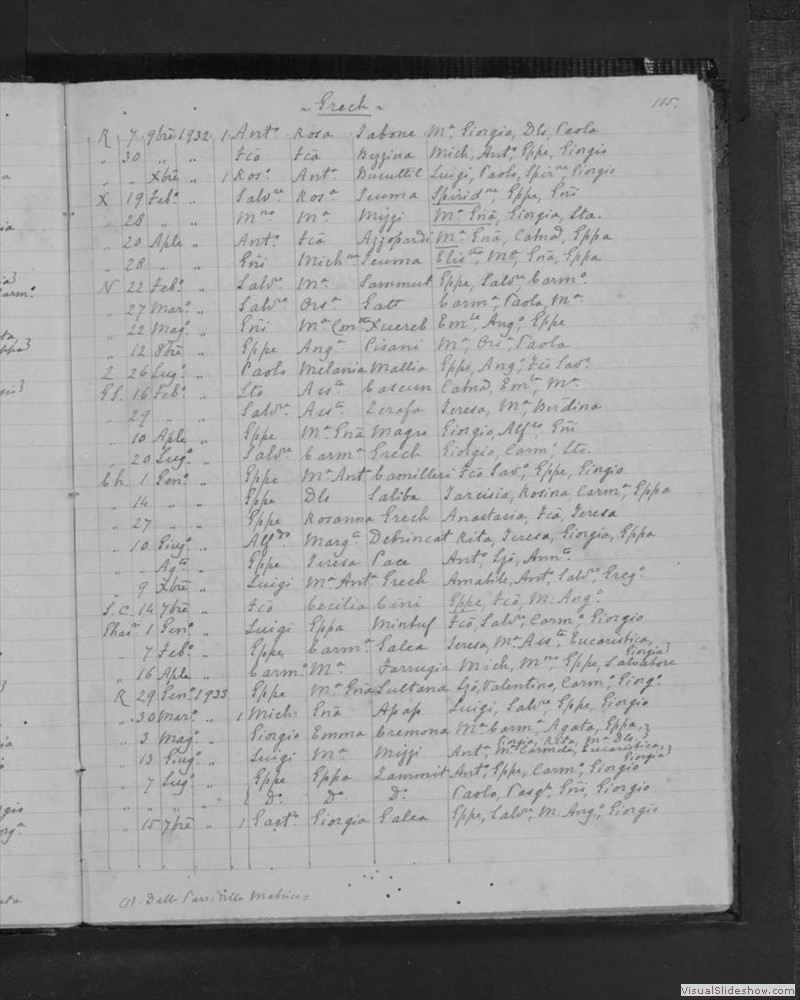 ~ Grech ~
115.
R 7 9bre 1932 1 Anto. Rosa Tabone Ma. Giorgia, Dls, Paola
„ 30 „ „ Fco Fca Bezzina Mich, Anto, Eppe, Giorgio
„ „ Xbre „ 1 Roso. Anta. Buuttil Luigi, Paolo, Spirne, Giorgio
X 19 Febo. „ Salvre Rosa. Scuma Spiridne, Eppe, Gni
„ 28 „ „ Mno Ma. Mizzi Ma. Gna, Giorgia, Sta.
„ 20 Aple „ Anto. Fca Azzopardi Ma. Gna, Catnd, Eppa
„ 28 „ „ Gni Michna Scuma Elistta, Ma, Gna, Eppa
N 22 Febo. „ Salvre Ma. Sammut Eppe, Salvre Carmo.
„ 27 Maro. „ Salvre Orsa Gatt Carma, Paola, Ma.
„ 22 Mago. „ Gni Ma Contta Xuereb Emle, Ango, Eppe
„ 12 8bre „ Eppe Anga. Pisani Ma, Orsa, Paola
Z 26 Lugo. „ Paolo Melania Mallia Eppe, Ango, Fco Savo.
GS. 16 Febo. „ Sto Assta Cascun Catnd, Emla, Ma.
„ 29 „ „ Salvre Assta. Zerafa Teresa, Ma, Berdina
„ 10 Aple „ Eppe Ma. Gna Magro Giorgio, Alfdo, Gni
„ 20 Lugo. „ Salvre Carma Grech Giorgio, Carmo, Sto.
Ch 1 Geno. „ Eppe Ma. Anta Camilleri Fco Savo, Eppe, Giorgio
„ 14 „ „ Eppe Dls Saliba Tarcisia, Rosina, Carma, Eppa
„ 27 „ „ Eppe Rosanna Grech Anastasia, Fca, Teresa
„ 10 Giugo. „ Alfdo Marga Debrincat Rita, Teresa, Giorgia, Eppa
„ „ Agto „ Eppe Teresa Pace Anto, Sjo, Annta.
„ 9 Xbre „ Luigi Ma. Anta Grech Amabile, Anto, Salvre, Grego.
S.C. 14 7bre „ Fco Cecilia Cini Eppe, Fco, M. Ango.
Ghasr 1 Geno. „ Luigi Eppa Mintuf Fco, Salvre, Carmo, Giorgio
„ 7 Febo. „ Eppe Carma Galea Teresa, Ma. Assta, Eucaristica, Giorgia}
„ 16 Aple „ Carmo. Ma. Farrugia Mich, Mno, Eppe, Salvatore
R 29 Geno. 1933 Eppe Ma. Gna Sultana Sjo, Valentino, Carmo, Giorgo.
„ 30 Maro. „ 1 Mich Gna Apap Luigi, Salvre Eppe, Giorgio
„ 3 Mago. „ Giorgio Emma Cremona Ma. Carma, Agata, Eppa, Giorgia, Rita, Ma. Dls.}
„ 13 Giugo. „ Luigi Ma. Mizzi Anta, Ma. Carmela, Eucaristica, Giorgia}
„ 7 Lugo. „ Eppe Eppa Zammit Anto, Eppe, Carmo, Giorgio
„ „ „ „ Do. Do. Do. Paolo, Pasqle, Gni, Giorgio
„ 15 7bre „ 1 Gaeto. Giorgia Galea Eppe, Salvre, M. Ango, Giorgio
Dalla Matrice
VisualSlideshow.com